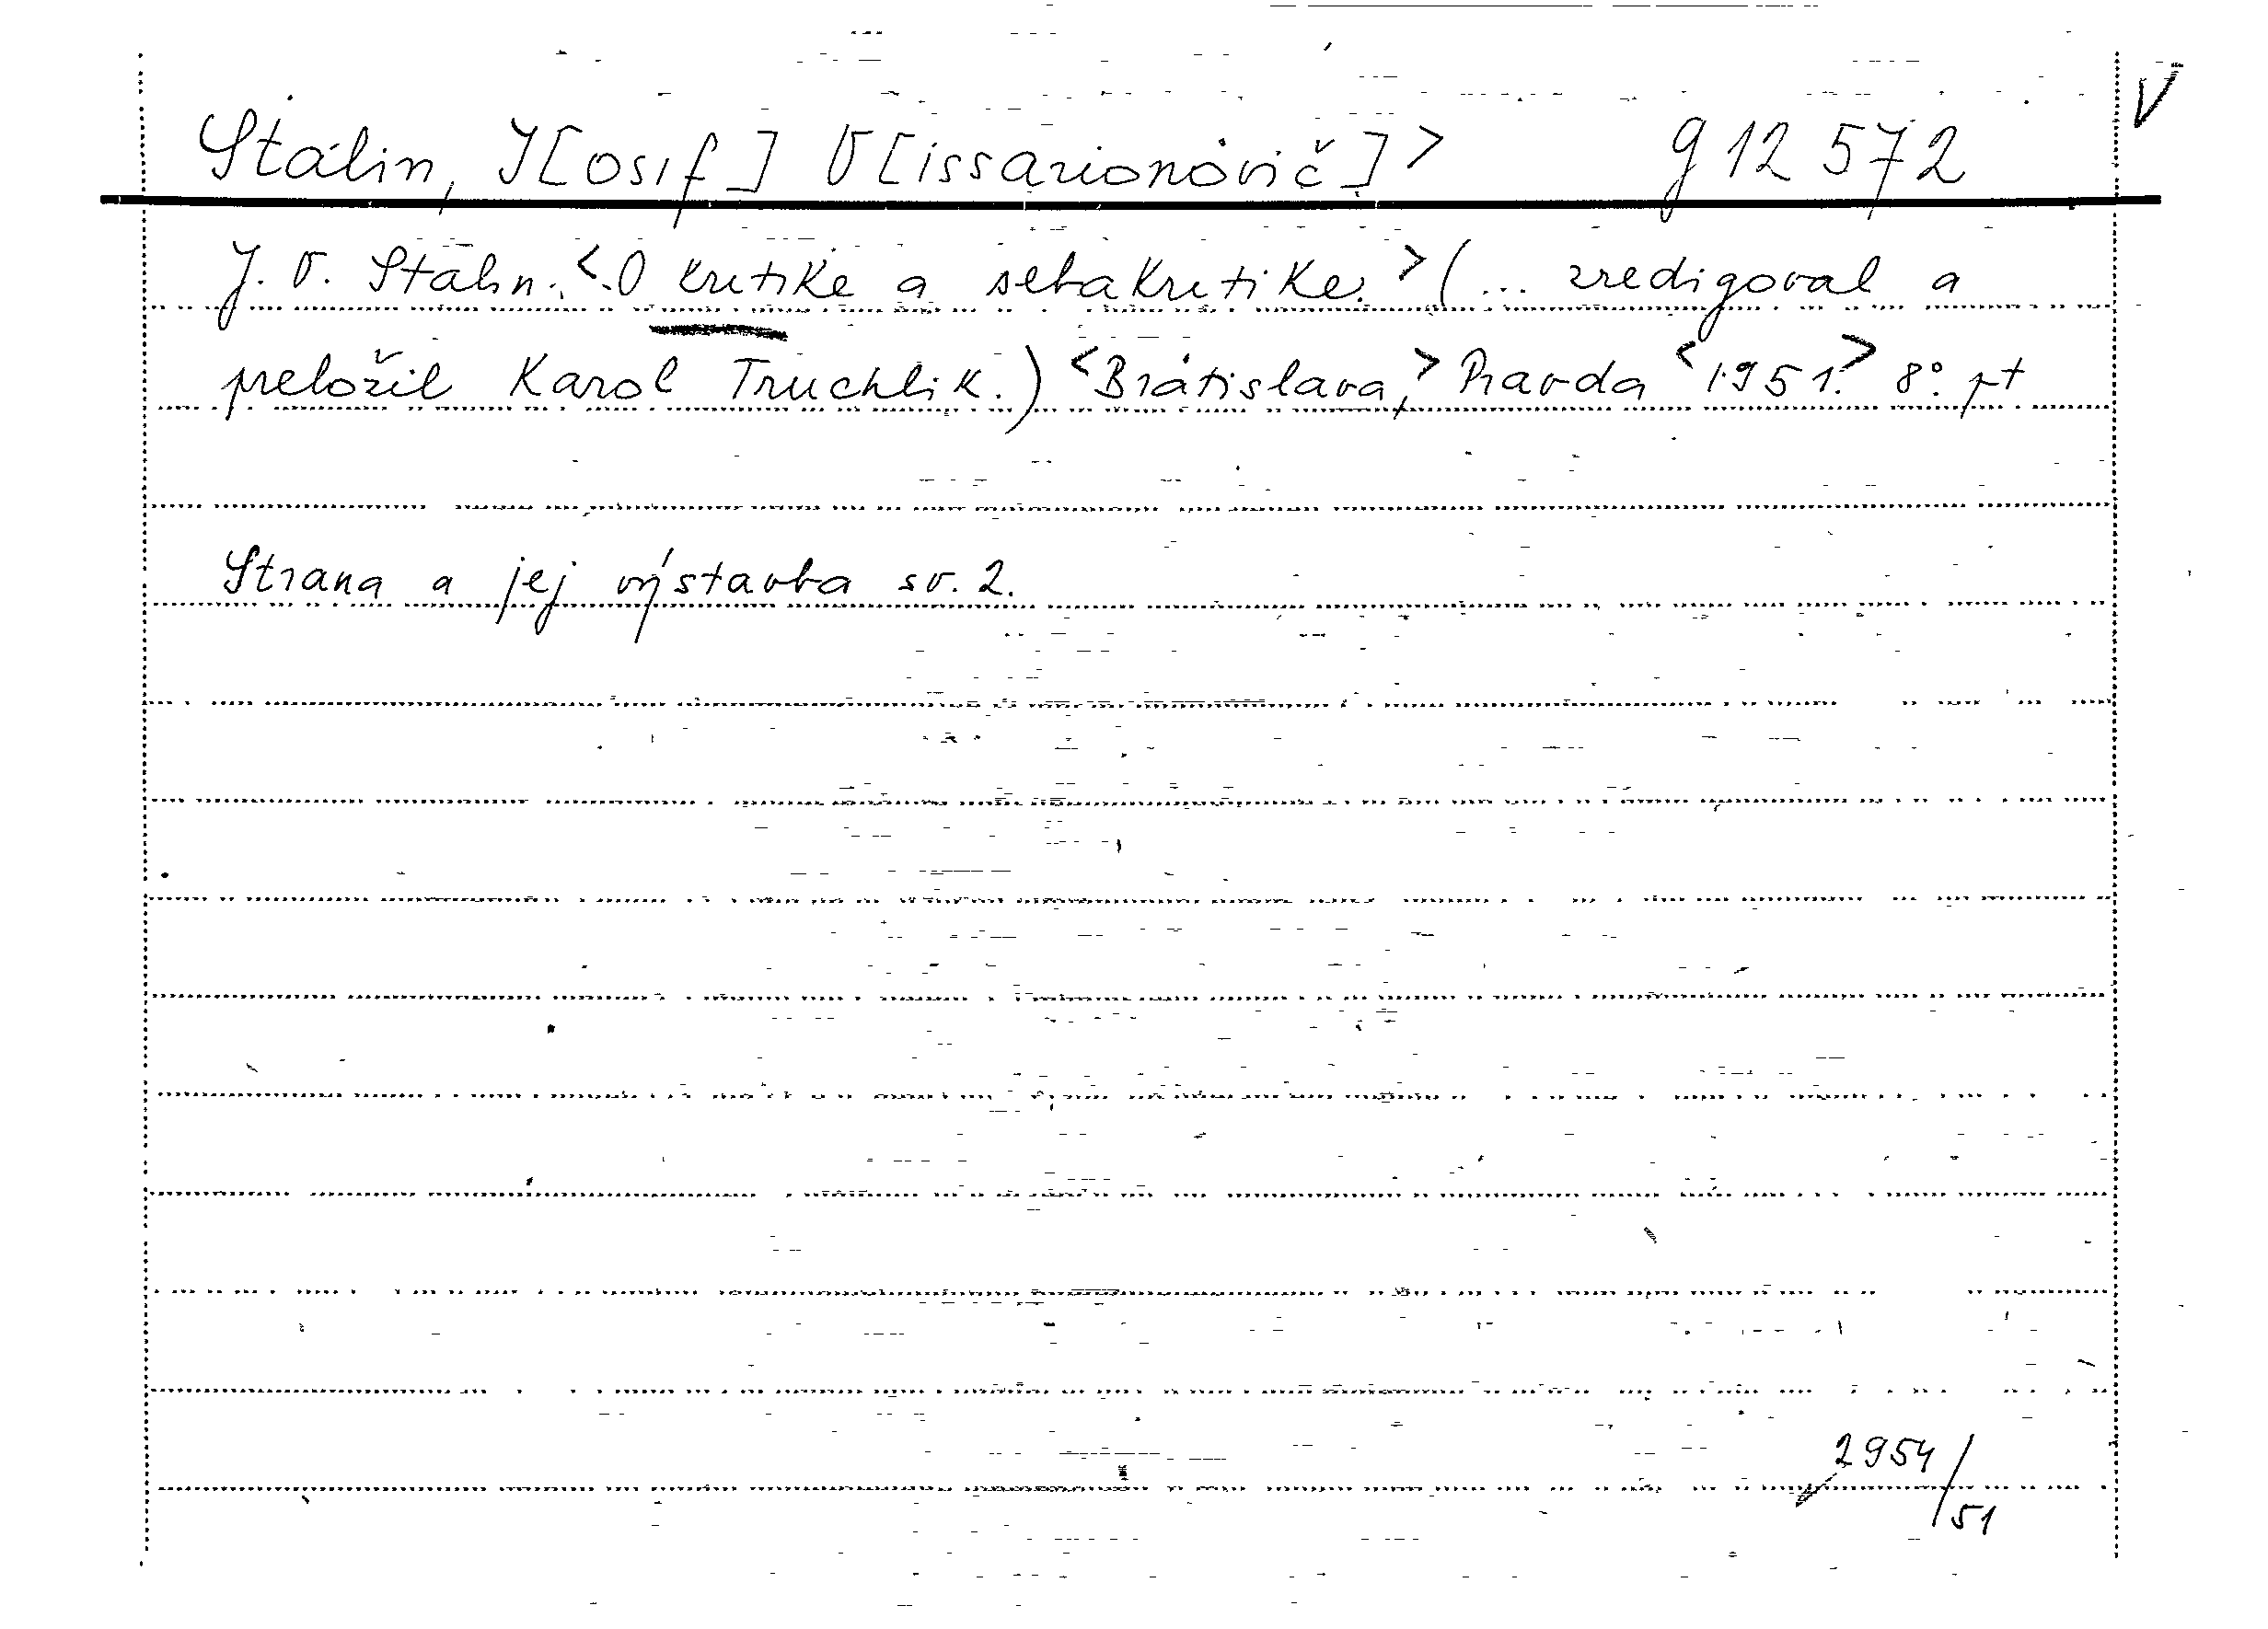 V
Stalin, J[osif] V[issarionovič]> g 12 572
J. V. Stalin: <O kritike a sebakritike.> (... zredigoval a
preložil Karol Truchlik.) <Bratislava,> Pravda <1951.> 8°. pt
Strana a jej výstavba sv. 2.
2954/51